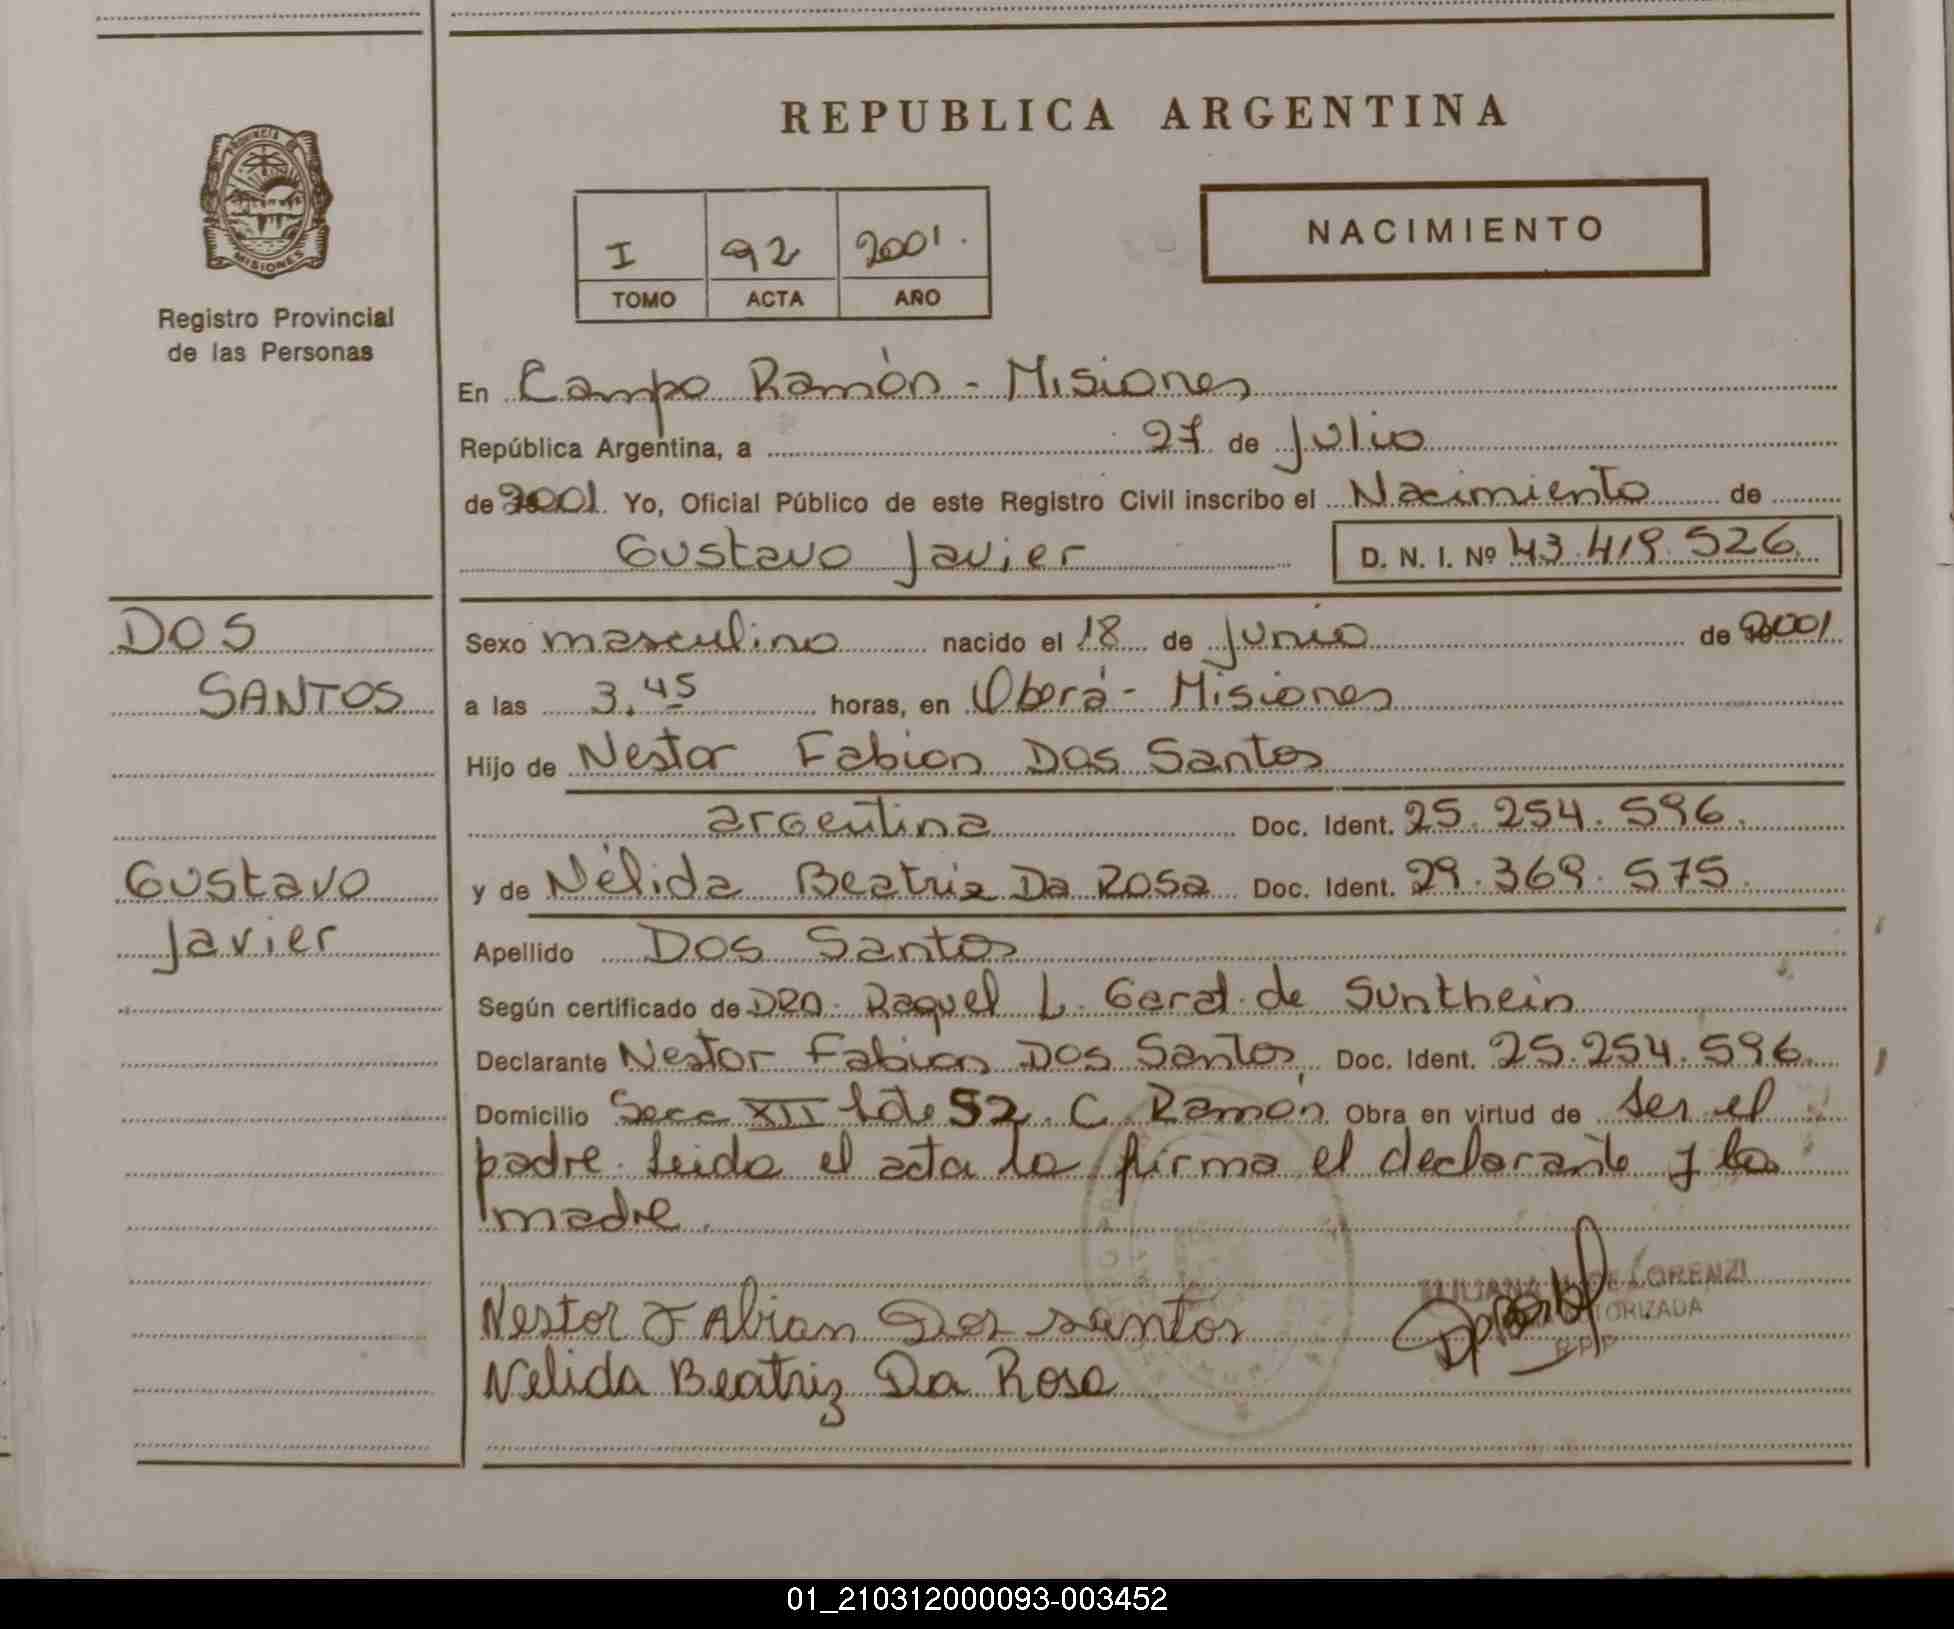 REPUBLICA ARGENTINA
PROVINCIA
MISIONES
Registro Provincial
de las Personas
I 92 2001.
TOMO ACTA AÑO
NACIMIENTO
En Campo Ramón - Misiones
República Argentina, a 27 de Julio
de 2001 Yo, Oficial Público de este Registro Civil inscribo el Nacimiento de
Gustavo Javier D. N. I. Nº 43.419.526.
DOS
SANTOS
Gustavo
Javier
Sexo masculino nacido el 18 de Junio de 2001
a las 3.45 horas, en Oberá - Misiones
Hijo de Nestor Fabian Dos Santos
argentina Doc. Ident. 25.254.596.
y de Nélida Beatriz Da Rosa Doc. Ident. 29.369.575.
Apellido Dos Santos
Según certificado de DRA. Raquel L. de Sunthein
Declarante Nestor Fabian Dos Santos, Doc. Ident. 25.254.596.
Domicilio Secc XII lote 52. C. Ramón, Obra en virtud de ser el
padre. Leida el acta la firma el declarante y la
madre.
Nestor Fabian Dos santos
Nelida Beatriz Da Rosa
DE LORENZI
R.P.P
01_210312000093-003452